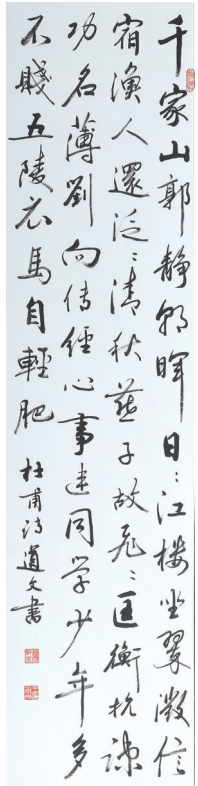 千家山郭靜朝暉日々江樓坐翠微信
宿漁人還泛々清秋燕子故飛々匡衡抗疏
功名薄劉向傳經心事違同学少年多
不賤五陵衣馬自輕肥 杜甫詩道文書